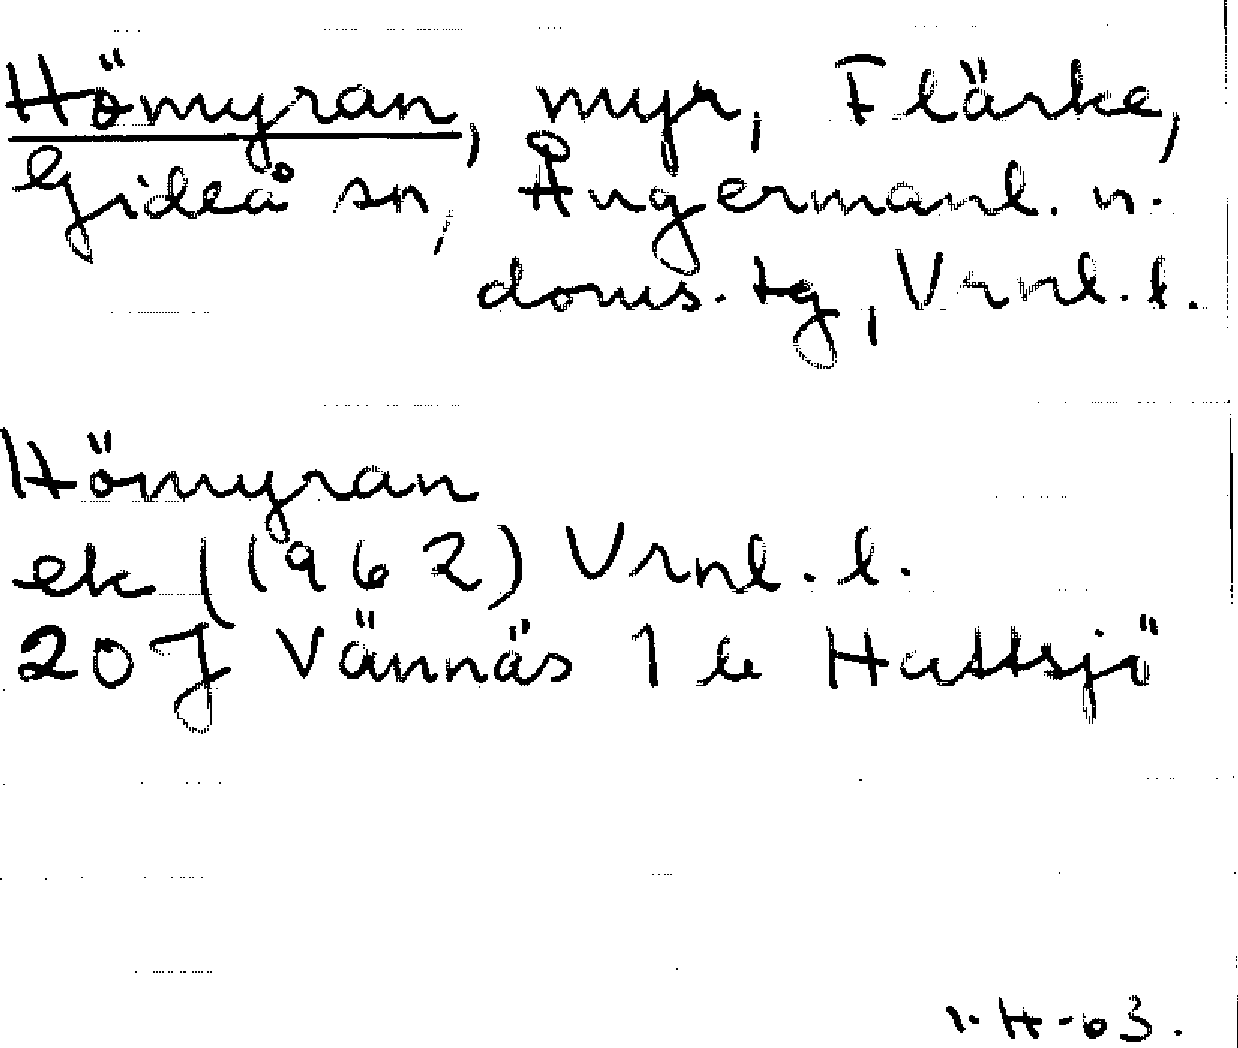 Hömyran, myr, Flärke,
Gideå sn, Ångermanl. n.
doms. tg, Vrnl. l.
Hömyran
ek (1962) Vrnl. l.
20 J Vännäs 1 e Hattsjö